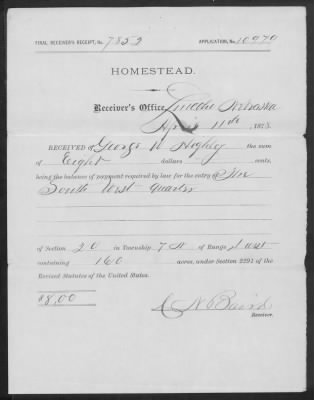 FINAL RECEIVER'S RECEIPT, No. 7852 APPLICATION, No. 10979
HOMESTEAD.
Receiver's Office, Lincoln Nebraska
April 11th, 1878.
RECEIVED of George W Highly the sum
of Eight dollars cents,
being the balance of payment required by law for the entry of the
South West quarter
of Section 20 in Township 7 N of Range West
containing 160 acres, under Section 2291 of the
Revised Statutes of the United States.
$8.00
N Baird
Receiver.